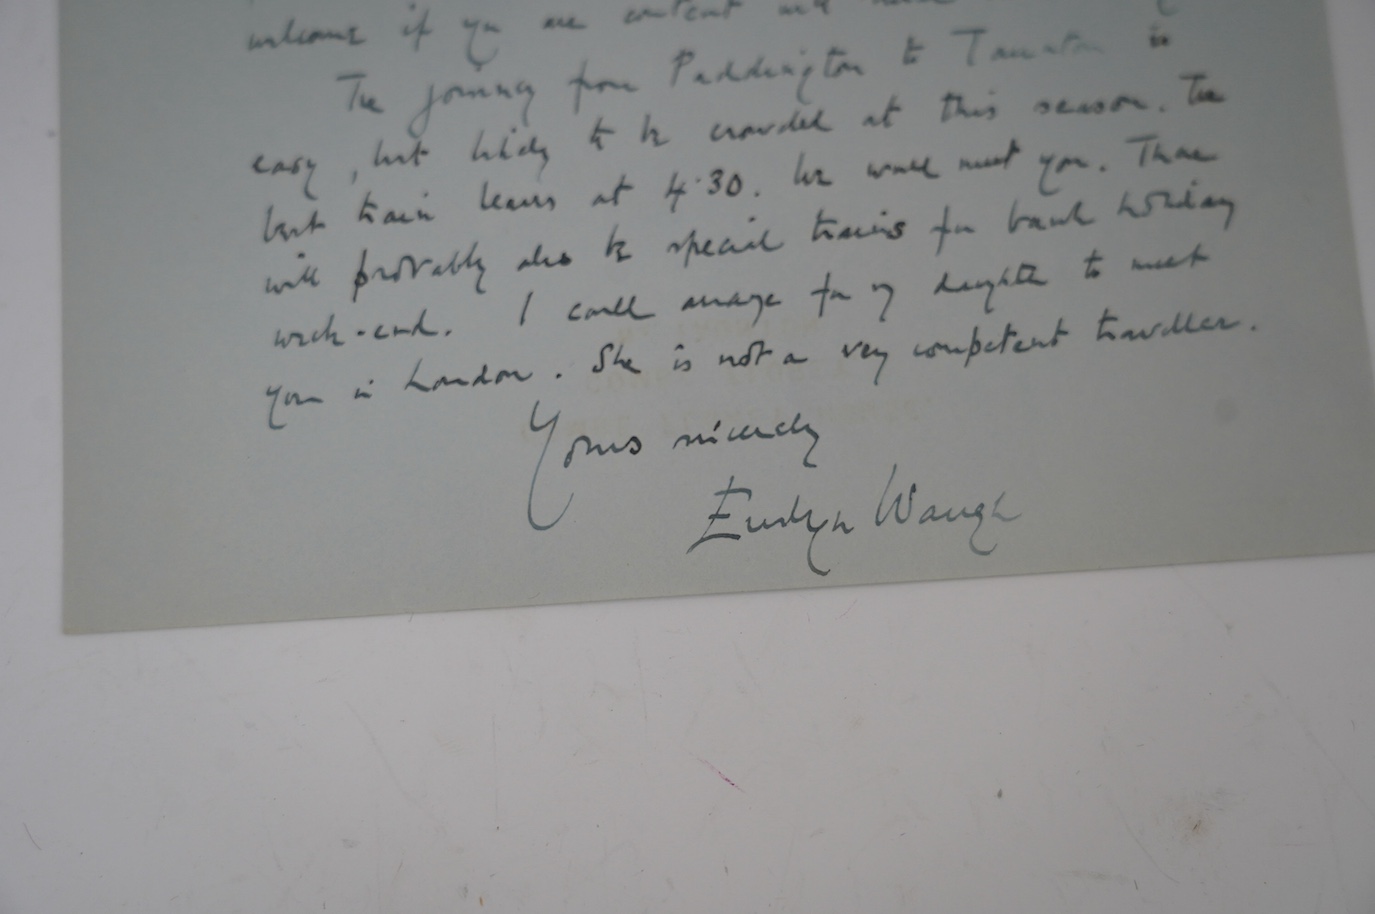 welcome if you are content
The journey from Paddington to Taunton is
easy, but likely to be crowded at this season. The
best train leaves at 4·30. We would meet you. There
will probably also be special trains for bank holiday
week-end. I could arrange for my daughter to meet
you in London. She is not a very competent traveller.
Yours sincerely
Evelyn Waugh